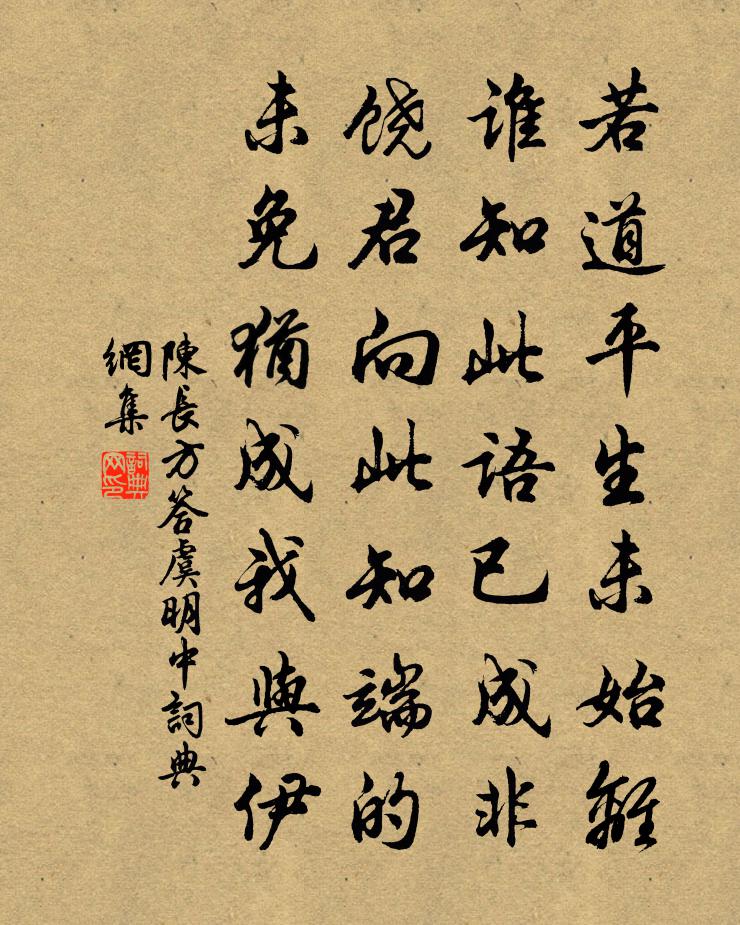 若道平生未始離
谁知此语已成非
饶君向此知端的
未免猶成我與伊
陳長方答虞明中詞典
網集
詞典
网印